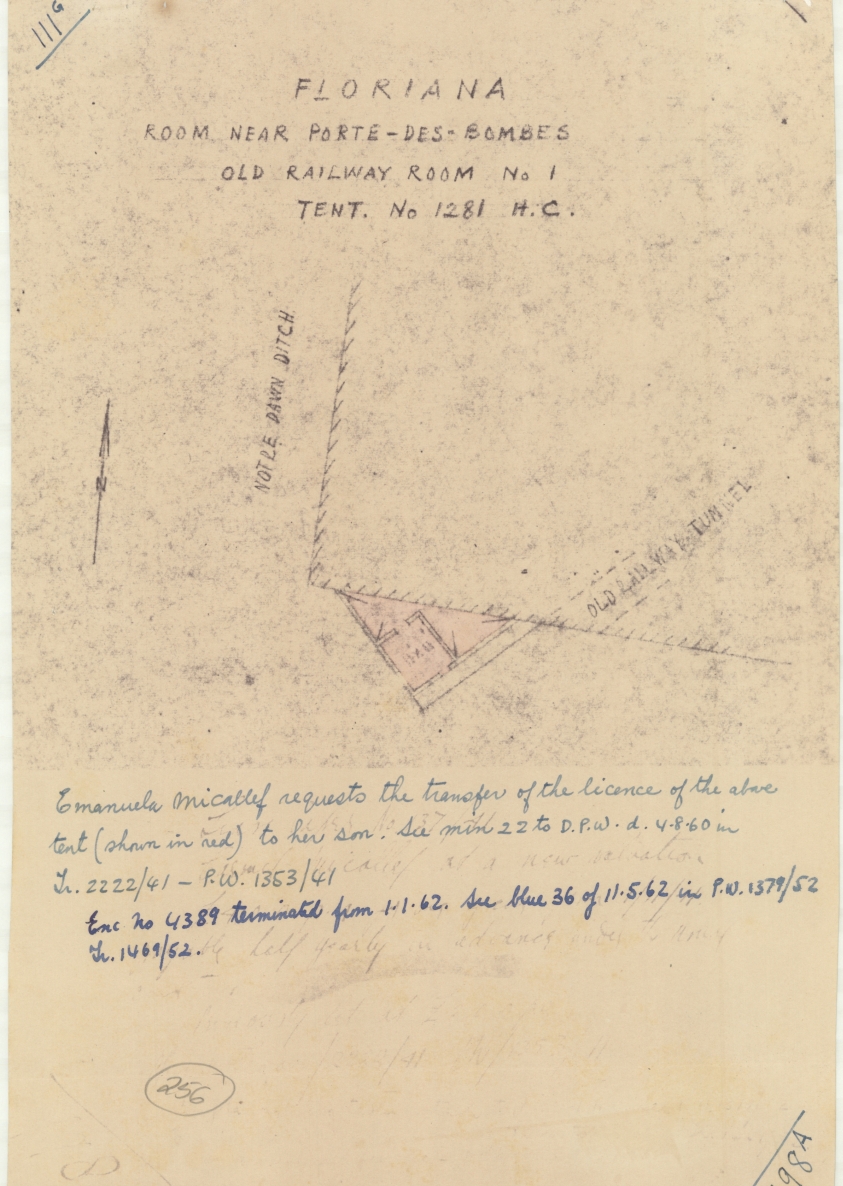 111G
FLORIANA
ROOM NEAR PORTE-DES-BOMBES
OLD RAILWAY ROOM No 1
TENT. No 1281 H.C.
NOTRE DAWN DITCH
N
OLD RAILWAY TUNNEL
Emanuela Micallef requests the transfer of the licence of the above
tent (shown in red) to her son. See min 22 to D.P.W. d. 4.8.60 in
Tr. 2222/41 – P.W. 1353/41
Enc No 4389 terminated from 1.1.62. See blue 36 of 11.5.62 in P.W. 1379/52
Tr. 1469/52.
half yearly in advance
256
98A